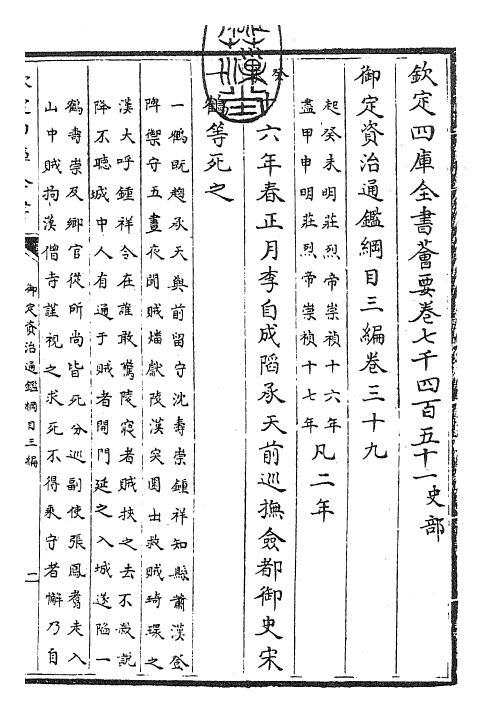 欽定四庫全書薈要卷七千四百五十一史部
御定資治通鑑綱目三編卷三十九
起癸未明莊烈帝崇禎十六年
盡甲申明莊烈帝崇禎十七年
凡二年
癸
十六年春正月李自成陷承天前巡撫僉都御史宋
一鶴等死之
一鶴既趨承天與前留守沈壽崇鍾祥知縣蕭漢登
陴禦守五晝夜聞賊燔獻陵漢突圍出救賊琦環之
漢大呼鍾祥令在誰敢驚陵寢者賊挾之去不殺説
降不聽城中人有通于賊者開門延之入城遂陷一
鶴壽崇及鄉官從所尚皆死分巡副使張鳳翥走入
山中賊拘漢僧寺謹視之求死不得乗守者懈乃自
御定資治通鑑綱目三編